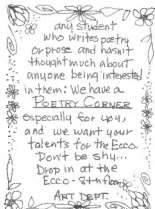 any student
who writes poetry
or prose and hasn't
thought much about
anyone being interested
in them: We have a
POETRY CORNER
especially for you,
and we want your
talents for the Ecco.
Don't be shy...
Drop in at the
Ecco - 8th floor
ART DEPT.